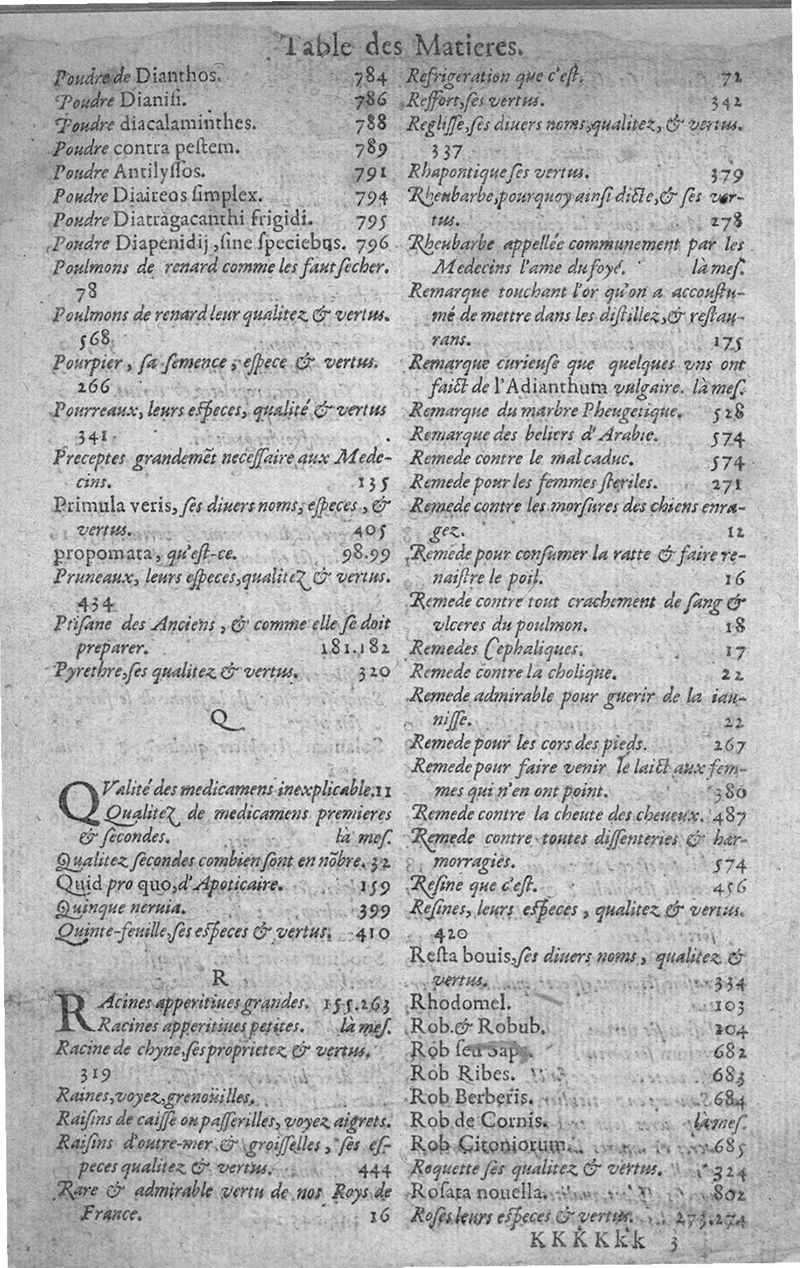 Table des Matieres.
Poudre de Dianthos. 784
Poudre Dianisi. 786
Poudre diacalaminthes. 788
Poudre contra pestem. 789
Poudre Antilyssos. 791
Poudre Diaireos simplex. 794
Poudre Diatragacanthi frigidi. 795
Poudre Diapenidij, sine speciebus. 796
Poulmons de renard comme les faut secher.
78
Poulmons de renard leur qualitez & vertus.
568
Pourpier, sa semence, espece & vertus.
266
Pourreaux, leurs especes, qualité & vertus
341
Preceptes grandemẽt necessaire aux Mede-
cins. 135
Primula veris, ses divers noms, especes, &
vertus. 405
propomata, qu'est-ce. 98.99
Pruneaux, leurs especes, qualitez & vertus.
434
Ptisane des Anciens, & comme elle se doit
preparer. 181.182
Pyrethre, ses qualitez & vertus. 320
Q
QValité des medicamens inexplicable. 11
Qualitez de medicamens premieres
& secondes. là mes.
Qualitez secondes combien sont en nõbre. 32
Quid pro quo, d'Apoticaire. 159
Quinque neruia. 399
Quinte-feuille, ses especes & vertus. 410
R
RAcines apperitiues grandes. 155.263
Racines apperitiues petites. là mes.
Racine de chyne, ses proprietez & vertus.
319
Raines, voyez, grenoüilles.
Raisins de caisse ou passerilles, voyez aigrets.
Raisins d'outre-mer & groisselles, ses es-
peces qualitez & vertus. 444
Rare & admirable vertu de nos Roys de
France. 16
Refrigeration que c'est. 72
Reffort, ses vertus. 342
Reglisse, ses diuers noms, qualitez, & vertus.
337
Rhapontique ses vertus. 379
Rheubarbe, pourquoy ainsi dicte, & ses ver-
tus. 278
Rheubarbe appellée communement par les
Medecins l'ame du foyé. là mes.
Remarque touchant l'or qu'on a accoustu-
mé de mettre dans les distillez, & restau-
rans. 175
Remarque curieuse que quelques vns ont
faict de l'Adianthum vulgaire. là mes.
Remarque du marbre Pheugetique. 528
Remarque des beliers d'Arabie. 574
Remede contre le mal caduc. 574
Remede pour les femmes steriles. 271
Remede contre les morsures des chiens enra-
gez. 12
Remede pour consumer la ratte & faire re-
naistre le poil. 16
Remede contre tout crachement de sang &
vlceres du poulmon. 18
Remedes Cephaliques. 17
Remede contre la cholique. 22
Remede admirable pour guerir de la iau-
nisse. 22
Remede pour les cors des pieds. 267
Remede pour faire venir le laict aux fem-
mes qui n'en ont point. 380
Remede contre la cheute des cheueux. 487
Remede contre toutes dissenteries & hæ-
morragies. 574
Resine que c'est. 456
Resines, leurs especes, qualitez & vertus.
420
Resta bouis, ses diuers noms, qualitez &
vertus. 334
Rhodomel. 103
Rob. & Robub. 104
Rob seu Sapa. 682
Rob Ribes. 683
Rob Berberis. 684
Rob de Cornis. là mes.
Rob Citoniorum. 685
Roquette ses qualitez & vertus. 324
Rosata nouella. 802
Roses leurs especes & vertus. 273.274
KKKKkk 3